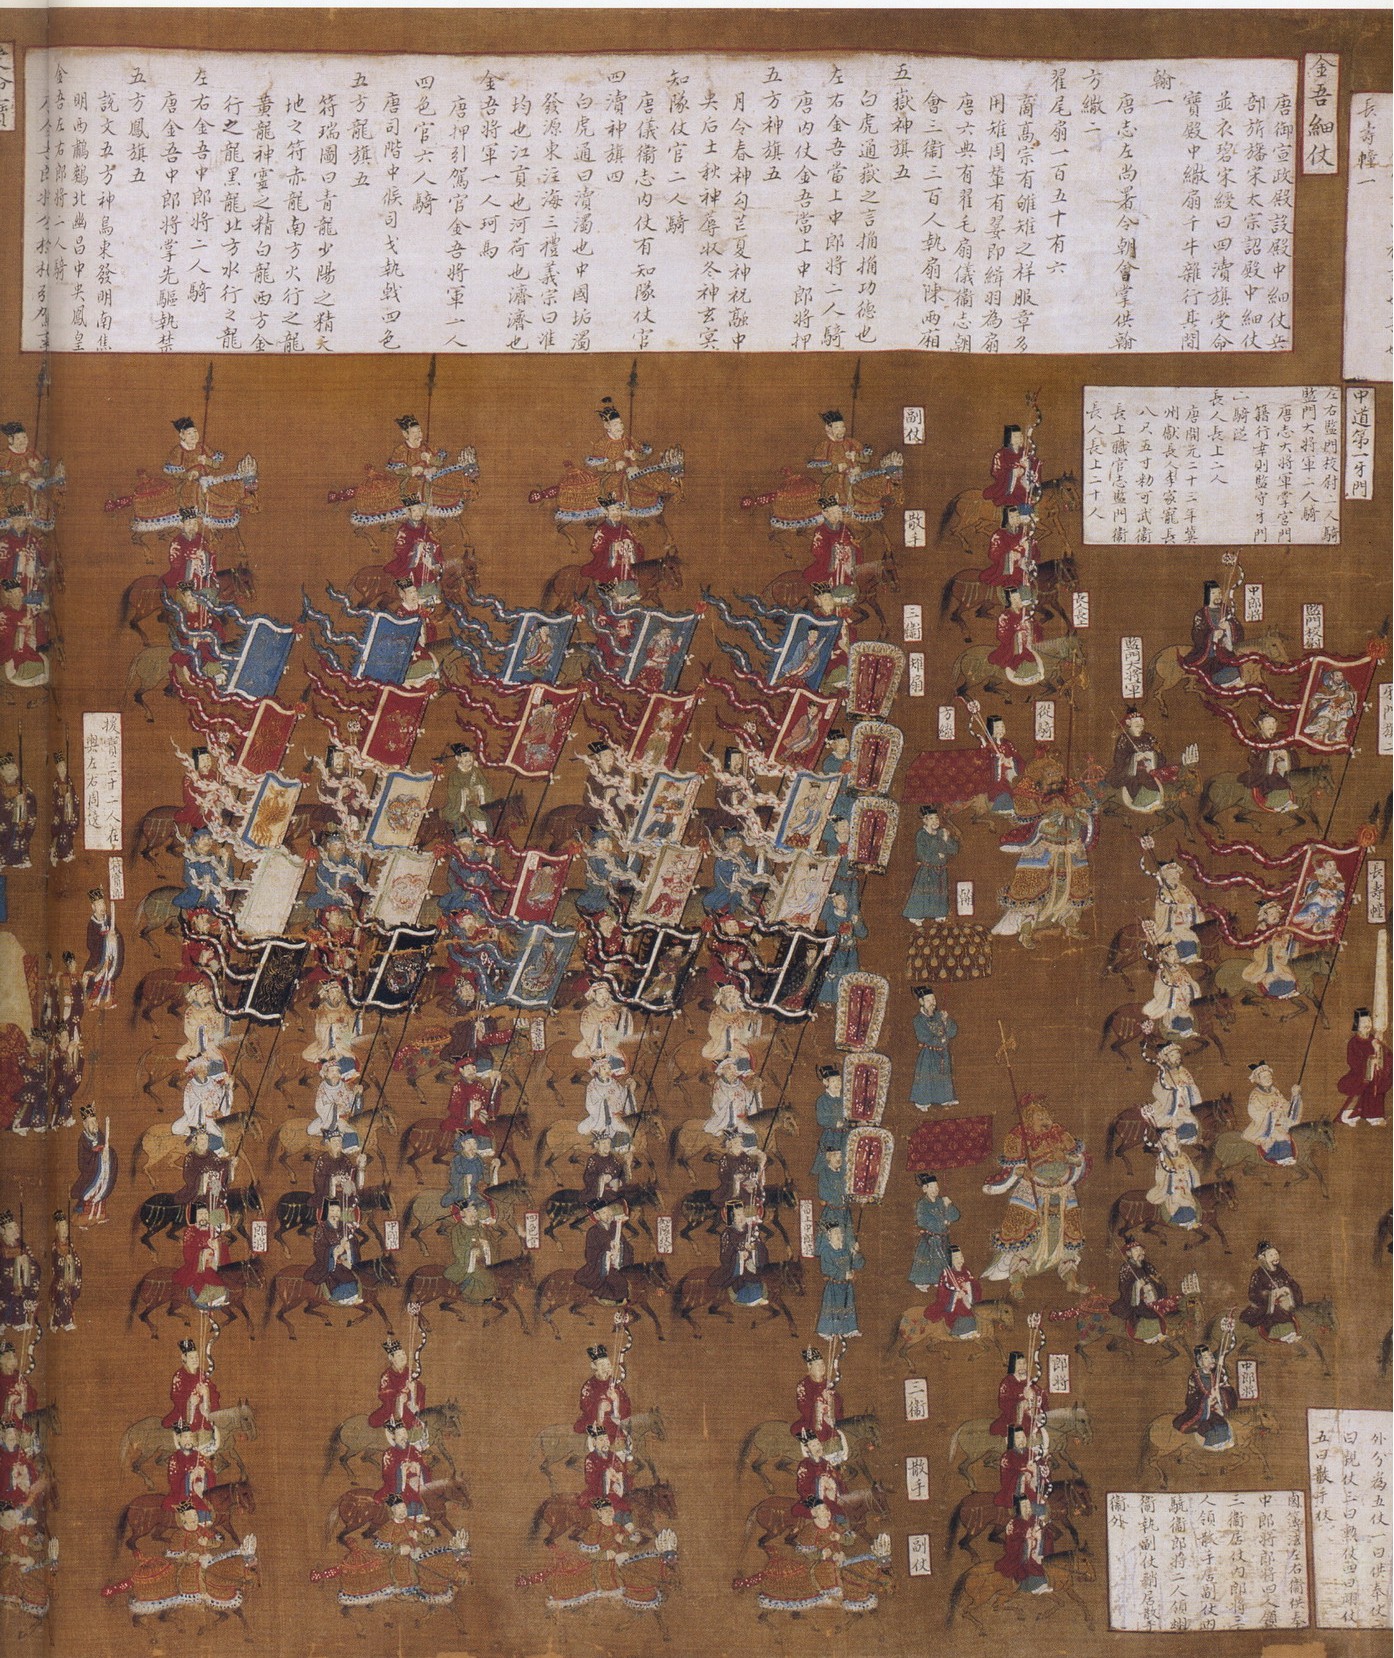 長壽幢一
金吾細仗
唐御宣政殿設殿中細仗兵
部旂旛宋太宗詔殿中細仗
並衣碧宋綬曰四瀆旗受命
寶殿中繖扇千牛雜行其間
翰一
唐志左尚署令朝會掌供翰
方繖二
翟尾扇一百五十有六
商高宗有雊雉之祥服章多
用雉周輦有翣即緝羽為扇
唐六典有翟毛扇儀衞志朝
會三衞三百人執扇陳兩廂
五嶽神旗五
白虎通嶽之言捔捔功德也
左右金吾當上中郎將二人騎
唐內仗金吾當上中郎將押
五方神旗五
月令春神勾芒夏神祝融中
央后土秋神蓐收冬神玄冥
知隊仗官二人騎
唐儀衞志內仗有知隊仗官
四瀆神旗四
白虎通曰瀆濁也中國垢濁
發源東注海三禮義宗曰淮
均也江貢也河荷也濟濟也
金吾將軍一人珂馬
唐押引駕官金吾將軍二人
四色官六人騎
唐司階中候司戈執戟四色
五方龍旗五
符瑞圖曰青龍少陽之精天
地之符赤龍南方火行之龍
黃龍神靈之精白龍西方金
行之龍黑龍北方水行之龍
左右金吾中郎將二人騎
唐金吾中郎將掌先驅執禁
五方鳳旗五
說文五方神鳥東發明南焦
明西鷫鷞北幽昌中央鳳皇
金吾左右郎將二人騎
中道第一牙門
左右監門校尉二人騎
監門大將軍二人騎
唐志大將軍掌宮門
籍行幸則監守牙門
二騎從
長人長上二人
唐開元二十三年冀
州獻長人李家寵長
八尺五寸勑可武衞
長上職官志監門衞
長人長上二十人
副仗
散手
三衞
雉扇
長人
中郎將
監門校尉
監門大將軍
方繖
從騎
援寶三十一人在
輿左右周遶
長壽幢
翰
中郎
四色官
郎將
郎將
中郎將
三衞
散手
副仗
鹵簿法左右衞供奉
中郎將郎將四人領
三衞居仗內郎將三
人領散手居副仗四
驍衞郎將二人領翊
衞執副仗矟居散手
衞外
外分為五仗一曰供奉仗二
曰親仗三曰勳仗四曰翊仗
五曰散手仗